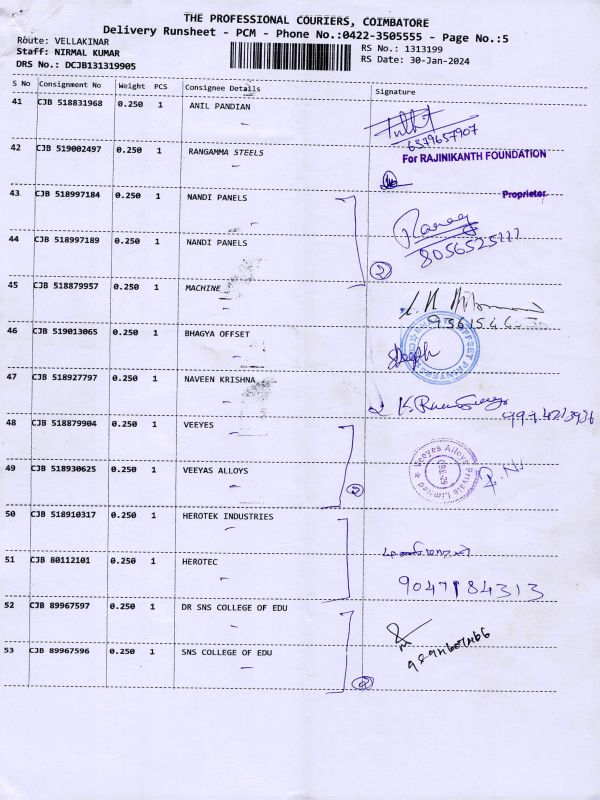 THE PROFESSIONAL COURIERS, COIMBATORE
Delivery Runsheet - PCM - Phone No.:0422-3505555 - Page No.:5
Route: VELLAKINAR
Staff: NIRMAL KUMAR
DRS No.: DCJB131319905
RS No.: 1313199
RS Date: 30-Jan-2024
S No Consignment No Weight PCS Consignee Details Signature
41 CJB 518831968 0.250 1 ANIL PANDIAN
6379657907
42 CJB 519002497 0.250 1 RANGAMMA STEELS
For RAJINIKANTH FOUNDATION
Proprietor
43 CJB 518997184 0.250 1 NANDI PANELS
44 CJB 518997189 0.250 1 NANDI PANELS
2
45 CJB 518879957 0.250 1 MACHINE
46 CJB 519013065 0.250 1 BHAGYA OFFSET
47 CJB 518927797 0.250 1 NAVEEN KRISHNA
48 CJB 518879904 0.250 1 VEEYES
49 CJB 518930625 0.250 1 VEEYAS ALLOYS
2
Veeyes Alloys Private Limited
CBE-29
50 CJB 518910317 0.250 1 HEROTEK INDUSTRIES
51 CJB 80112101 0.250 1 HEROTEC
9047184313
52 CJB 89967597 0.250 1 DR SNS COLLEGE OF EDU
53 CJB 89967596 0.250 1 SNS COLLEGE OF EDU